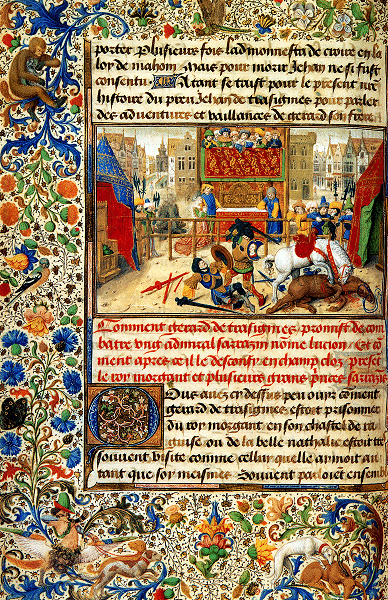 porter Plusieurs fois ladmonnesta de croire en la
loy de mahom Mais pour morir Jehan ne si fust
consentu Atant se taist pour le present nre
histoire du preu Jehan de trasignies pour parler
des aduentures et vaillances de gerard son frere
Comment gerard de trasignies promist de com
batre vng admiral sarrazin nõme lucion Et cõ
ment apres ce il le desconfy en champ clos present
le roy morgant et plusieurs grans princes sarrazins
Ous auez cy dessus peu ouyr comment
gerard de trasignies estoit prisonnier
du roy morgant en son chastel de ra
guse ou de la belle nathalie estoit tres
souuent visite comme celluy quelle amoit au
tant que soy meismes Souuent parloiet ensem